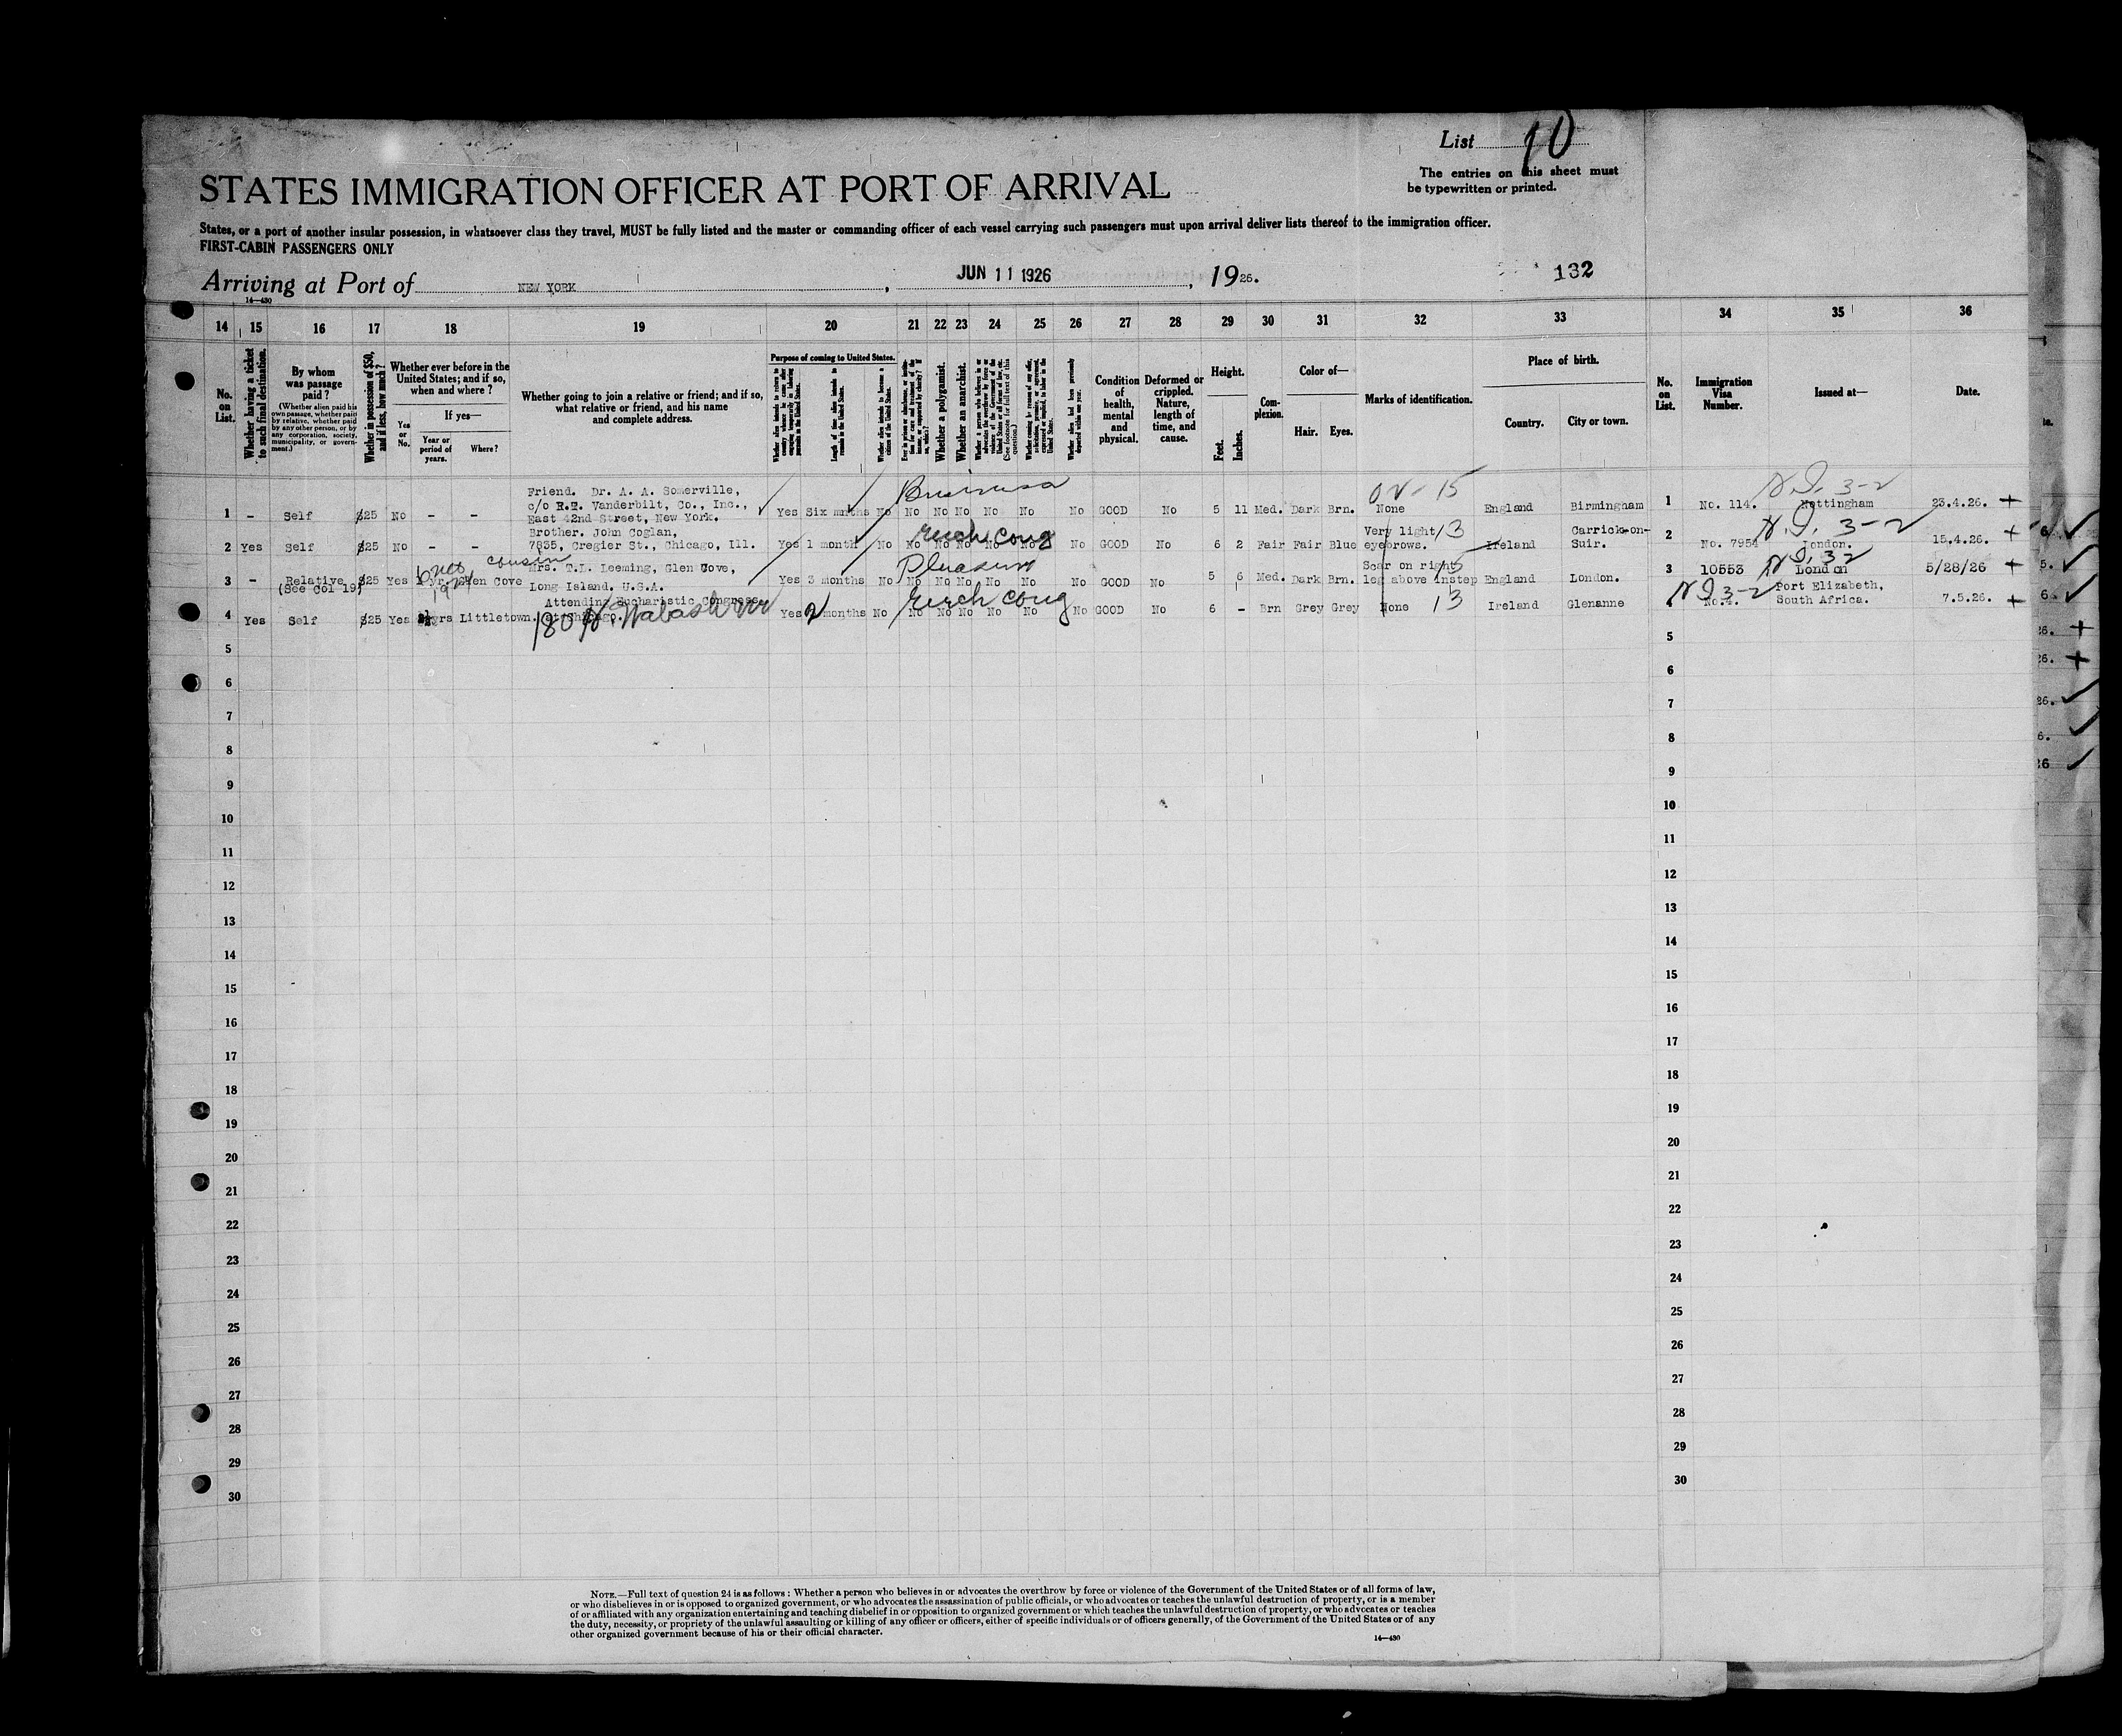 List 10
The entries on this sheet must
be typewritten or printed.
STATES IMMIGRATION OFFICER AT PORT OF ARRIVAL
States, or a port of another insular possession, in whatsoever class they travel, MUST be fully listed and the master or commanding officer of each vessel carrying such passengers must upon arrival deliver lists thereof to the immigration officer.
FIRST-CABIN PASSENGERS ONLY
Arriving at Port of NEW YORK, JUN 11 1926, 1926.
132
14—430
14 15 16 17 18 19 20 21 22 23 24 25 26 27 28 29 30 31 32 33 34 35 36
No. on List.
Whether having a ticket to such final destination.
By whom was passage paid?
(Whether alien paid his own passage, whether paid by relative, whether paid by any other person, or by any corporation, society, municipality, or government.)
Whether in possession of $50, and if less, how much?
Whether ever before in the United States; and if so, when and where?
Yes or No.
If yes—
Year or period of years.
Where?
Whether going to join a relative or friend; and if so, what relative or friend, and his name and complete address.
Purpose of coming to United States.
Length of time alien intends to remain in the United States.
Whether alien intends to become a citizen of the United States.
Whether a polygamist.
Whether an anarchist.
(See footnote for full text of this question.)
Condition of health, mental and physical.
Deformed or crippled. Nature, length of time, and cause.
Height.
Feet.
Inches.
Complexion.
Color of—
Hair.
Eyes.
Marks of identification.
Place of birth.
Country.
City or town.
No. on List.
Immigration Visa Number.
Issued at—
Date.
Business
Friend. Dr. A. A. Somerville,
c/o R.T. Vanderbilt, Co., Inc.,
East 42nd Street, New York.
1 – Self $25 No – – Yes Six mnths No No No No No No No GOOD No 5 11 Med. Dark Brn. None England Birmingham 1 No. 114. Nottingham 23.4.26. +
OV-15
N.I. 3-2
Euch Cong
Brother. John Coglan,
7835, Cregier St., Chicago, Ill.
2 Yes Self $25 No – – Yes 1 month No No No No No No No GOOD No 6 2 Fair Fair Blue Very light eyebrows. Ireland Carrick-on-Suir. 2 No. 7954 London. 15.4.26. +
13
N.I. 3-2
Pleasure
cousin
Mrs. T.L. Leeming, Glen Cove,
Long Island. U.S.A.
3 – Relative (See Col 19) $25 Yes 1 yr. Glen Cove Yes 3 months No No No No No No No GOOD No 5 6 Med. Dark Brn. Scar on right leg above instep England London. 3 10553 London 5/28/26 +
1924
N.I. 3-2
Euch Cong
Attending Eucharistic Congress
at Chicago.
4 Yes Self $25 Yes yrs Littletown. Yes 2 months No No No No No No No GOOD No 6 – Brn Grey Grey None Ireland Glenanne 4 No.4. Port Elizabeth, South Africa. 7.5.26. +
180 N. Wabash
13
N I 3-2
5 5
6 6
7 7
8 8
9 9
10 10
11 11
12 12
13 13
14 14
15 15
16 16
17 17
18 18
19 19
20 20
21 21
22 22
23 23
24 24
25 25
26 26
27 27
28 28
29 29
30 30
NOTE.—Full text of question 24 is as follows: Whether a person who believes in or advocates the overthrow by force or violence of the Government of the United States or of all forms of law,
or who disbelieves in or is opposed to organized government, or who advocates the assassination of public officials, or who advocates or teaches the unlawful destruction of property, or is a member
of or affiliated with any organization entertaining and teaching disbelief in or opposition to organized government or which teaches the unlawful destruction of property, or who advocates or teaches
the duty, necessity, or propriety of the unlawful assaulting or killing of any officer or officers, either of specific individuals or of officers generally, of the Government of the United States or of any
other organized government because of his or their official character.
14—430